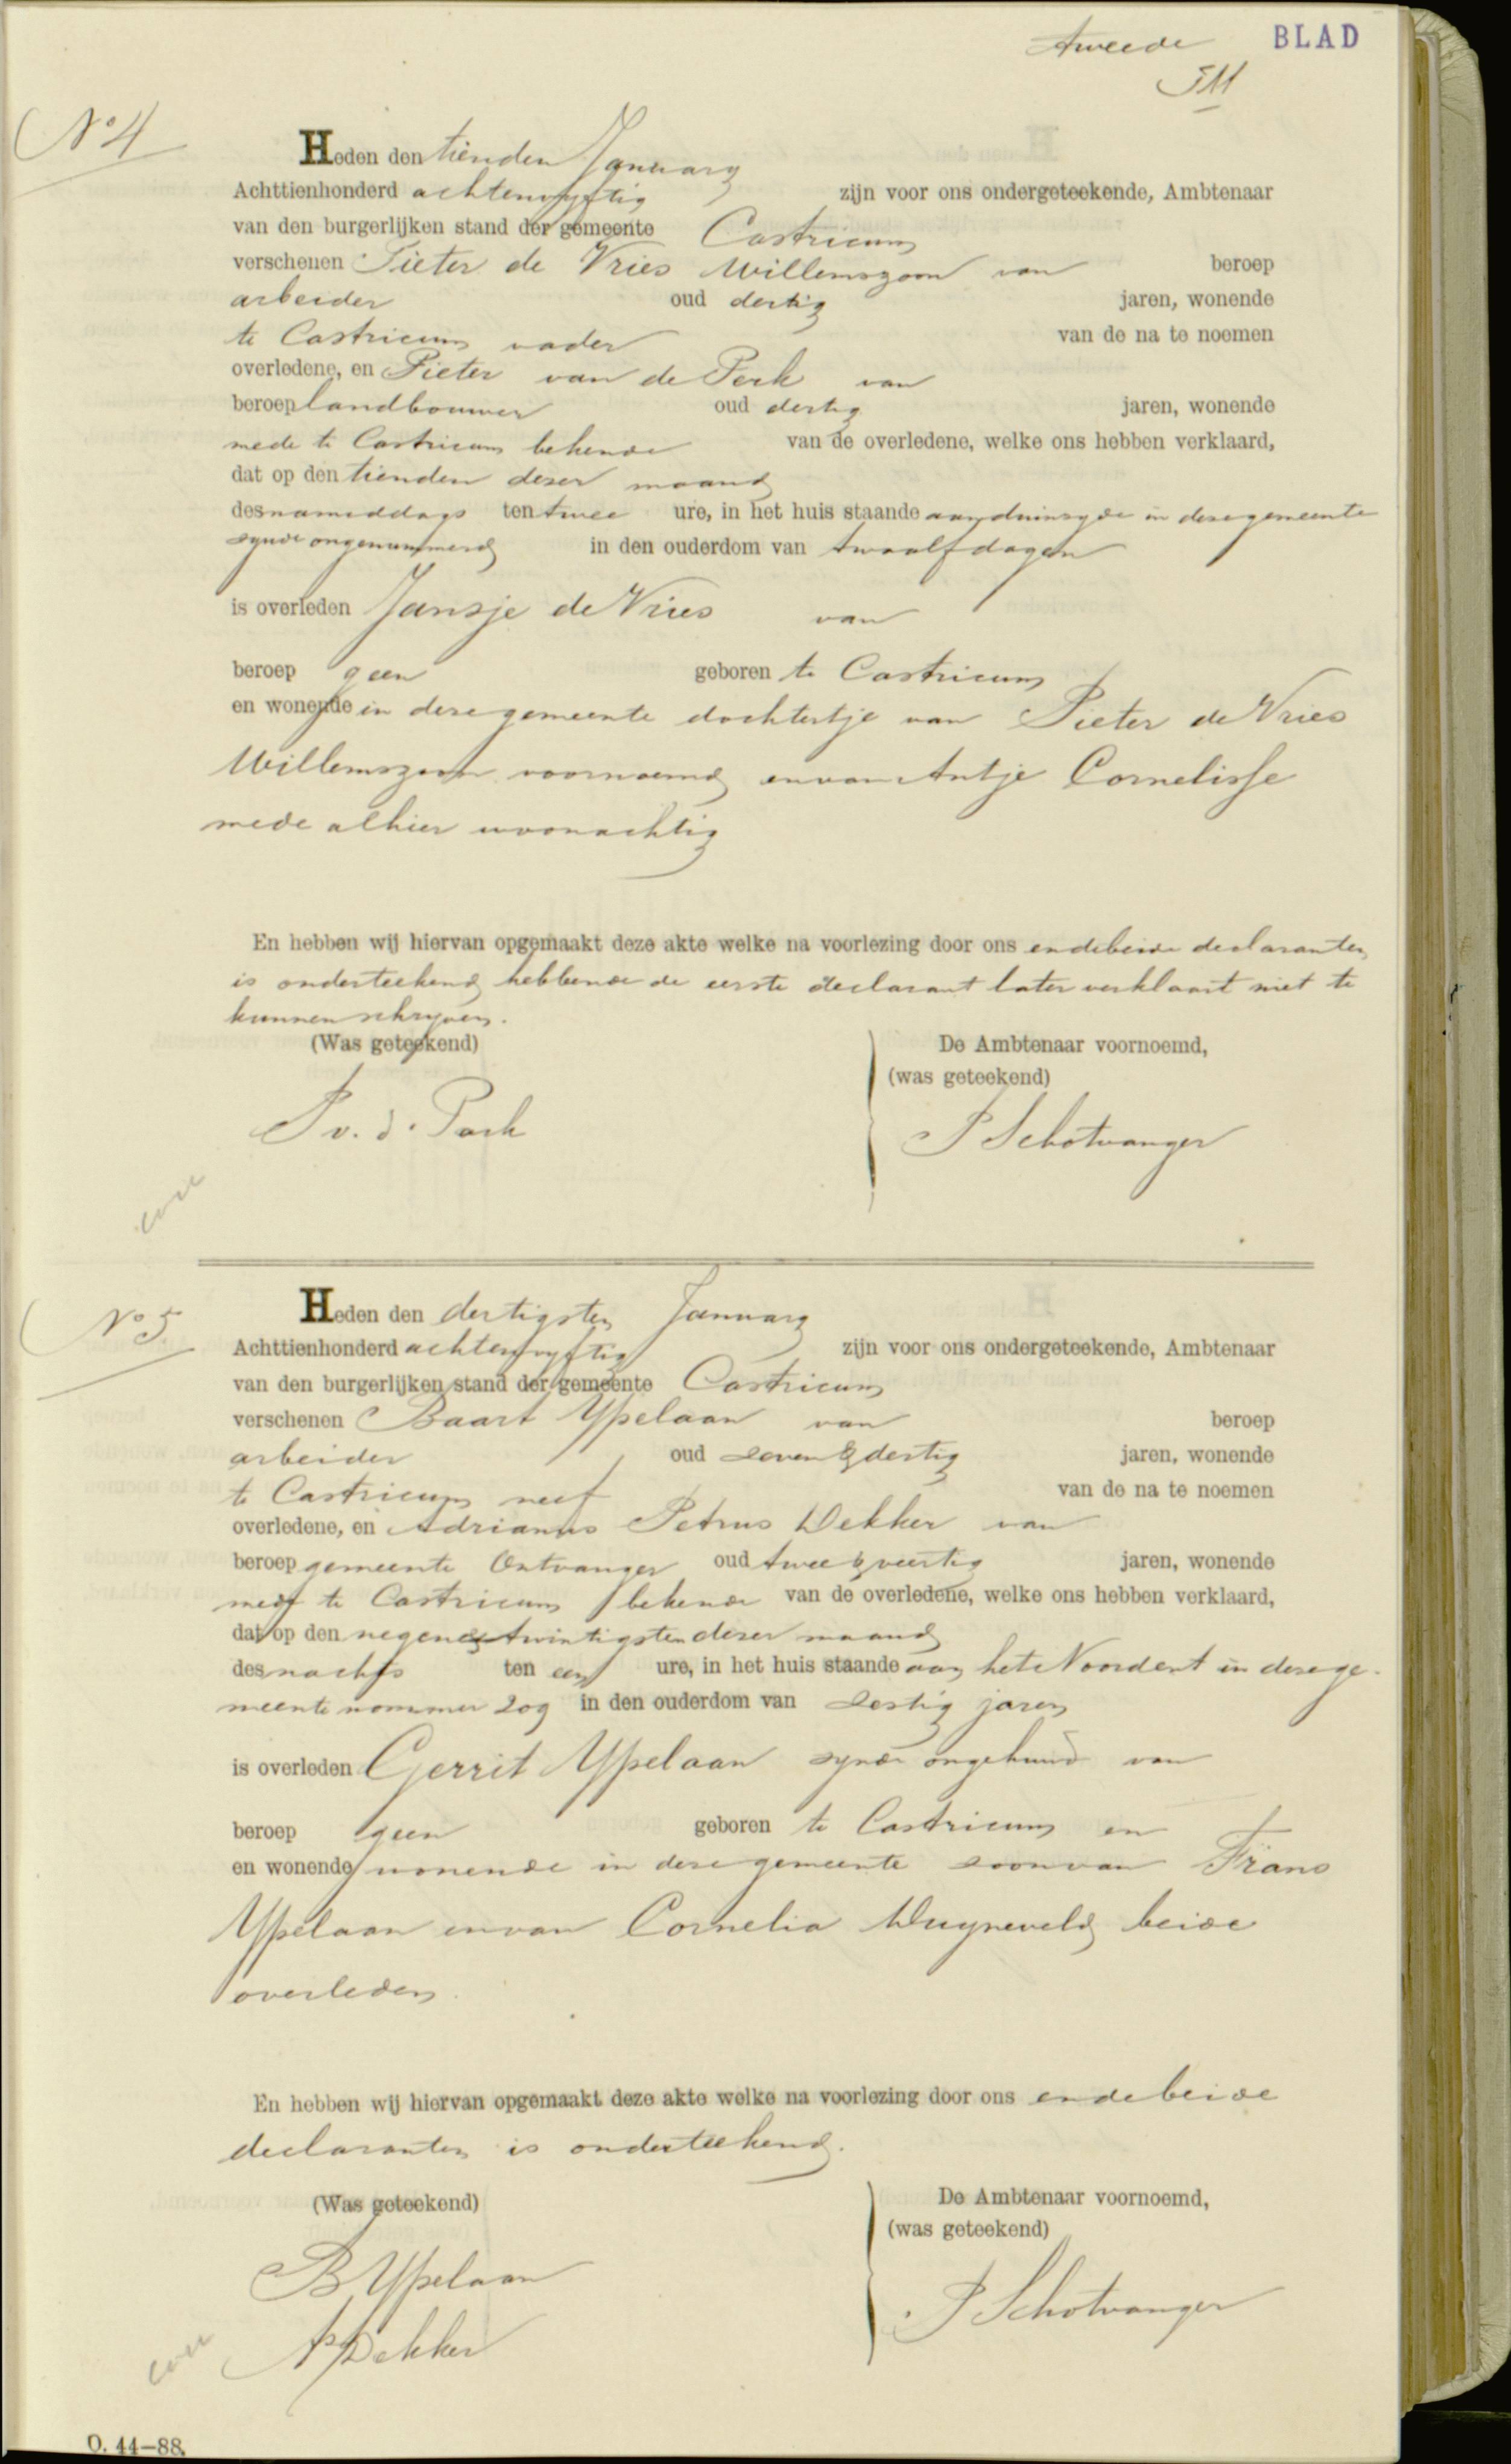 tweede BLAD
No 4
Heden den tienden January
Achttienhonderd achtenvyftig zijn voor ons ondergeteekende, Ambtenaar
van den burgerlijken stand der gemeente Castricum
verschenen Pieter de Vries Willemszoon van beroep
arbeider oud dertig jaren, wonende
te Castricum vader van de na te noemen
overledene, en Pieter van de Perk van
beroep landbouwer oud dertig jaren, wonende
mede te Castricum bekende van de overledene, welke ons hebben verklaard,
dat op den tienden dezer maand
des namiddags ten twee ure, in het huis staande aan duinzyde in deze gemeente
zynde ongenummerd in den ouderdom van twaalf dagen
is overleden Jansje de Vries van
beroep geen geboren te Castricum
en wonende in deze gemeente dochtertje van Pieter de Vries
Willemszoon voornoemd en van Antje Cornelisse
mede alhier woonachtig
En hebben wij hiervan opgemaakt deze akte welke na voorlezing door ons en de beide declaranten
is onderteekend hebbende de eerste declarant later verklaart niet te
kunnen schryven.
(Was geteekend) De Ambtenaar voornoemd,
(was geteekend)
P v. d. Park P Schotvanger
No 5
Heden den dertigsten January
Achttienhonderd achtenvyftig zijn voor ons ondergeteekende, Ambtenaar
van den burgerlijken stand der gemeente Castricum
verschenen Baart Ypelaan van beroep
arbeider oud zeven & dertig jaren, wonende
te Castricum neef van de na te noemen
overledene, en Adrianus Petrus Dekker van
beroep gemeente Ontvanger oud twee & veertig jaren, wonende
mede te Castricum bekende van de overledene, welke ons hebben verklaard,
dat op den negen & twintigsten dezer maand
des nachts ten een ure, in het huis staande aan het Noordent in deze ge-
meente nommer 209 in den ouderdom van zestig jaren
is overleden Gerrit Ypelaan zynde ongehuwd van
beroep geen geboren te Castricum en
en wonende wonende in deze gemeente zoon van Frans
Ypelaan en van Cornelia Duyneveld beide
overleden.
En hebben wij hiervan opgemaakt deze akte welke na voorlezing door ons en de beide
declaranten is onderteekend.
(Was geteekend) De Ambtenaar voornoemd,
(was geteekend)
B Ypelaan P Schotvanger
AP Dekker
O. 44–88.